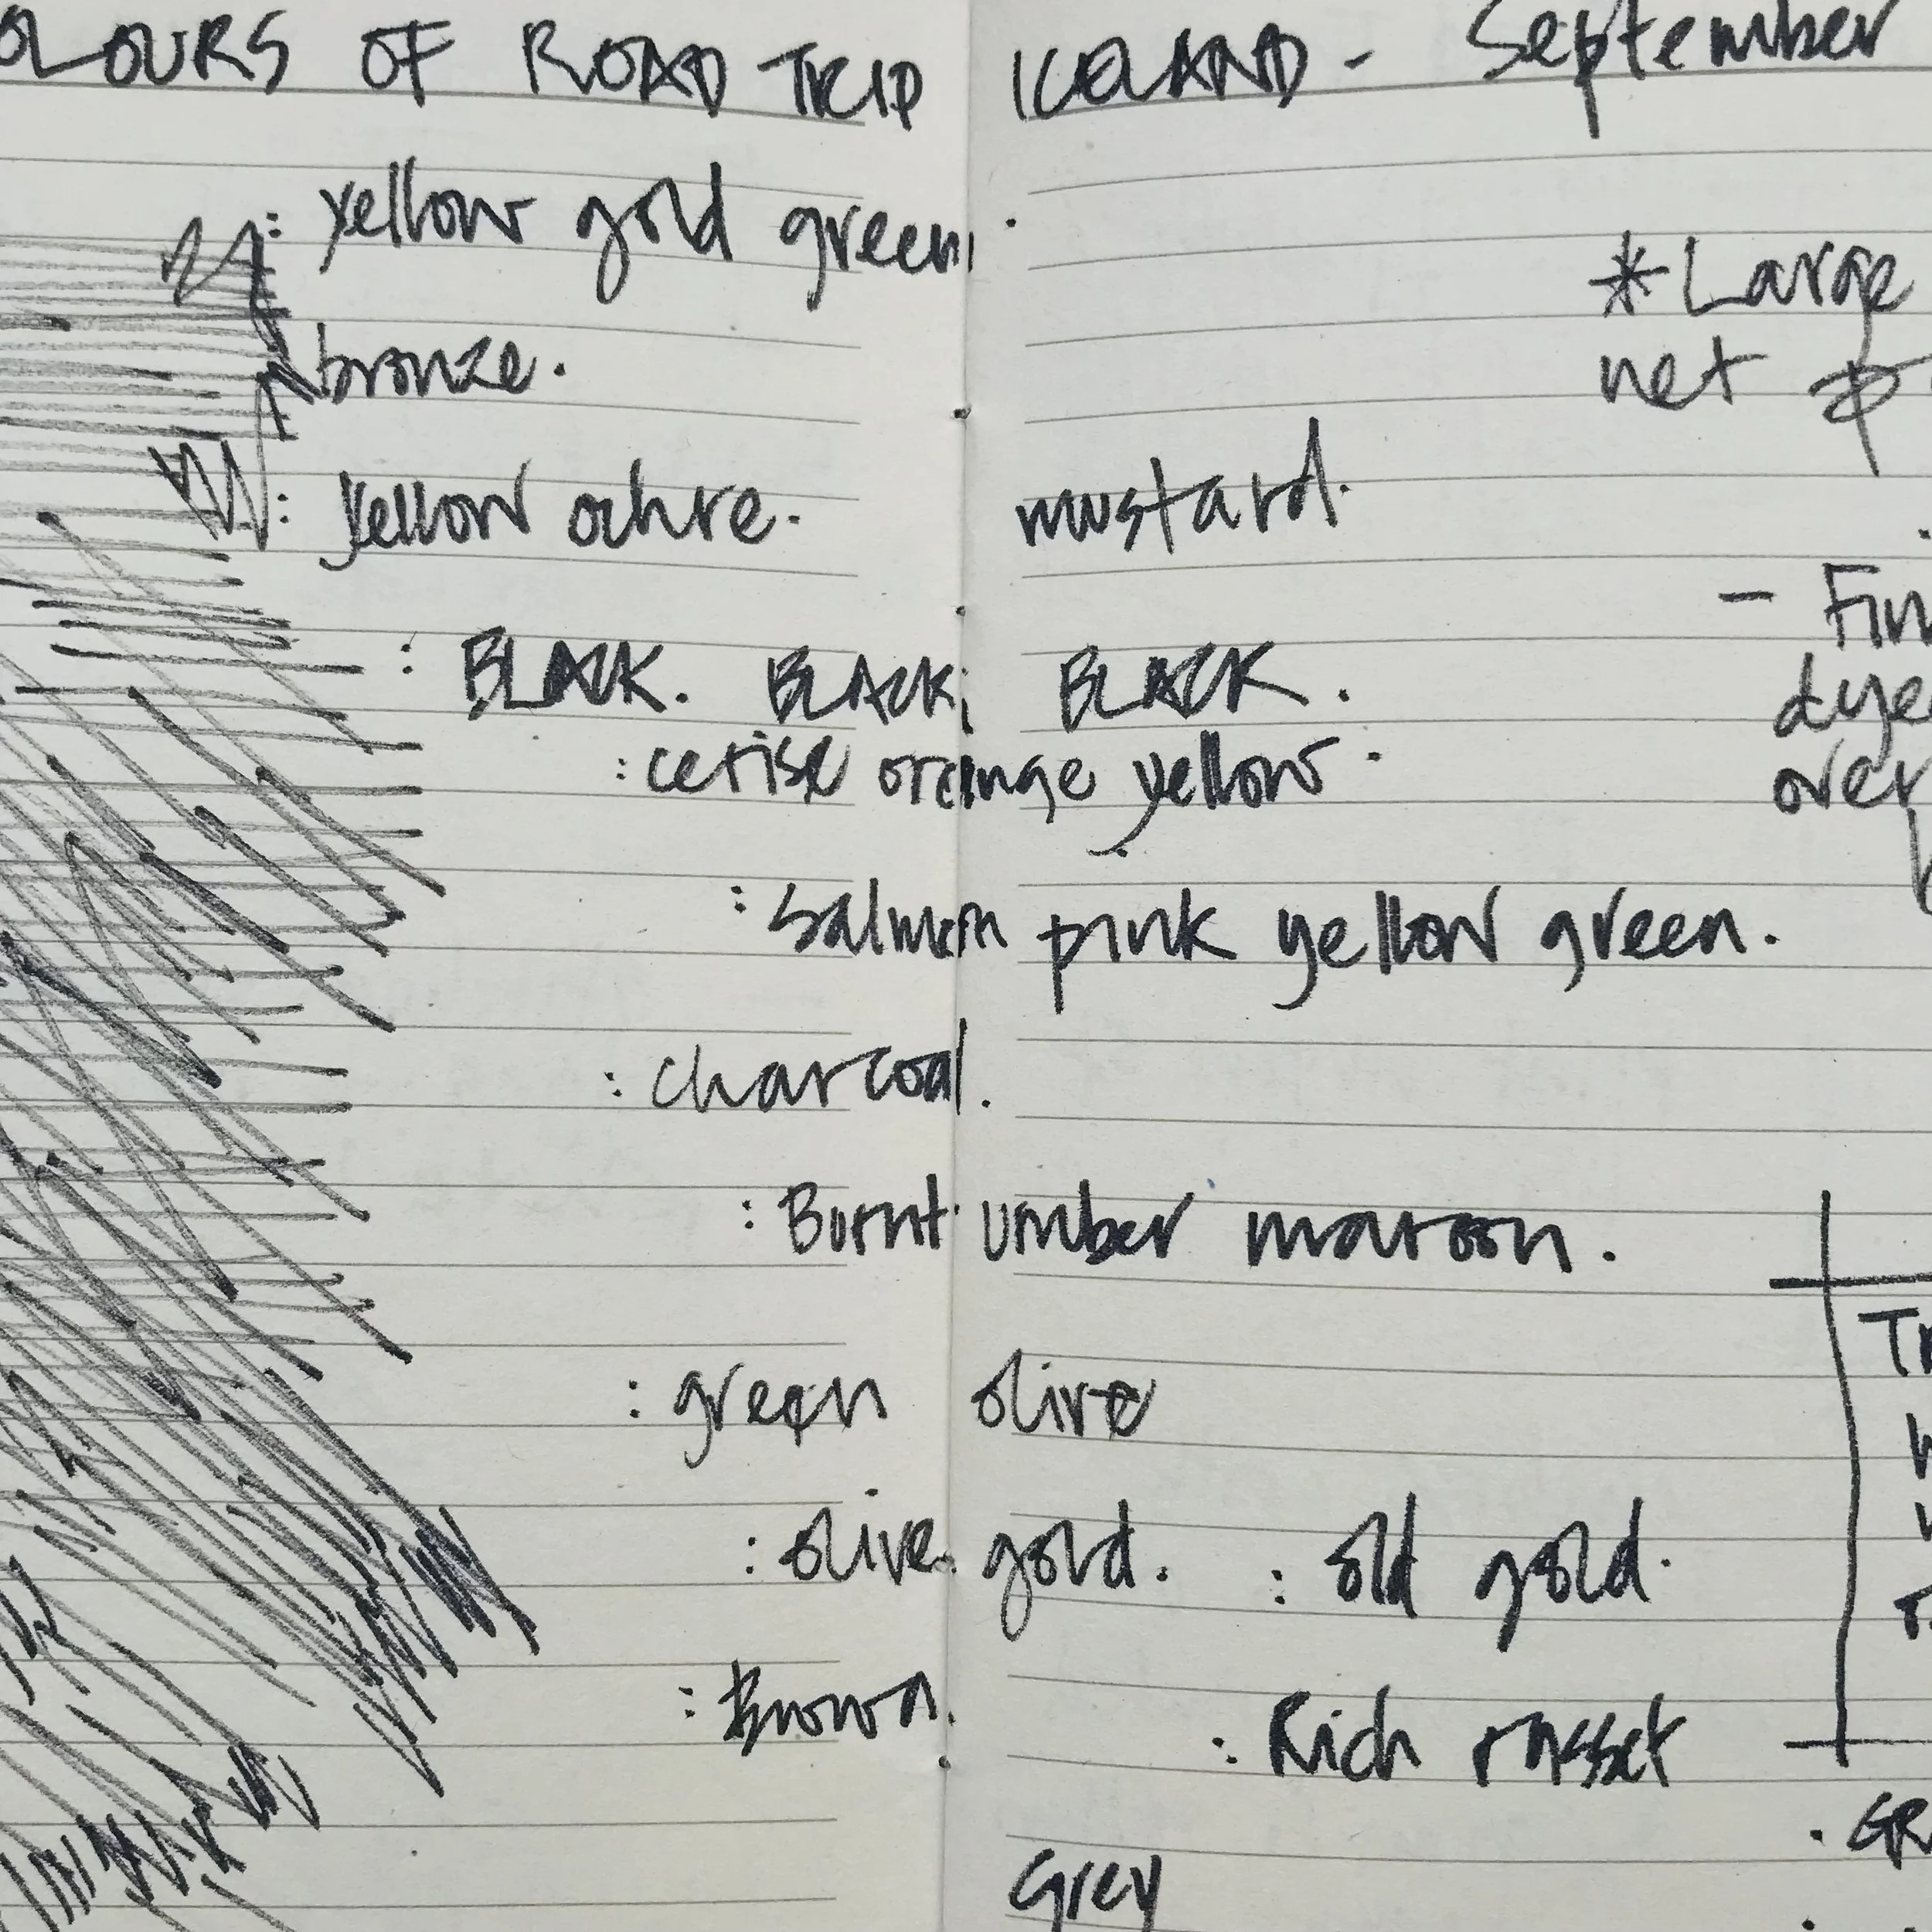 OLOURS OF ROAD TRIP ICELAND - September
: yellow gold green.
* Large
bronze.
net
: yellow ochre. mustard.
- Fin
: BLACK. BLACK. BLACK.
dye
: cerise orange yellow.
over
: Salmon pink yellow green.
: charcoal.
: Burnt umber maroon.
: green olive
Tr
: olive gold. : old gold.
: Brown. : Rich russet
. GR
Grey